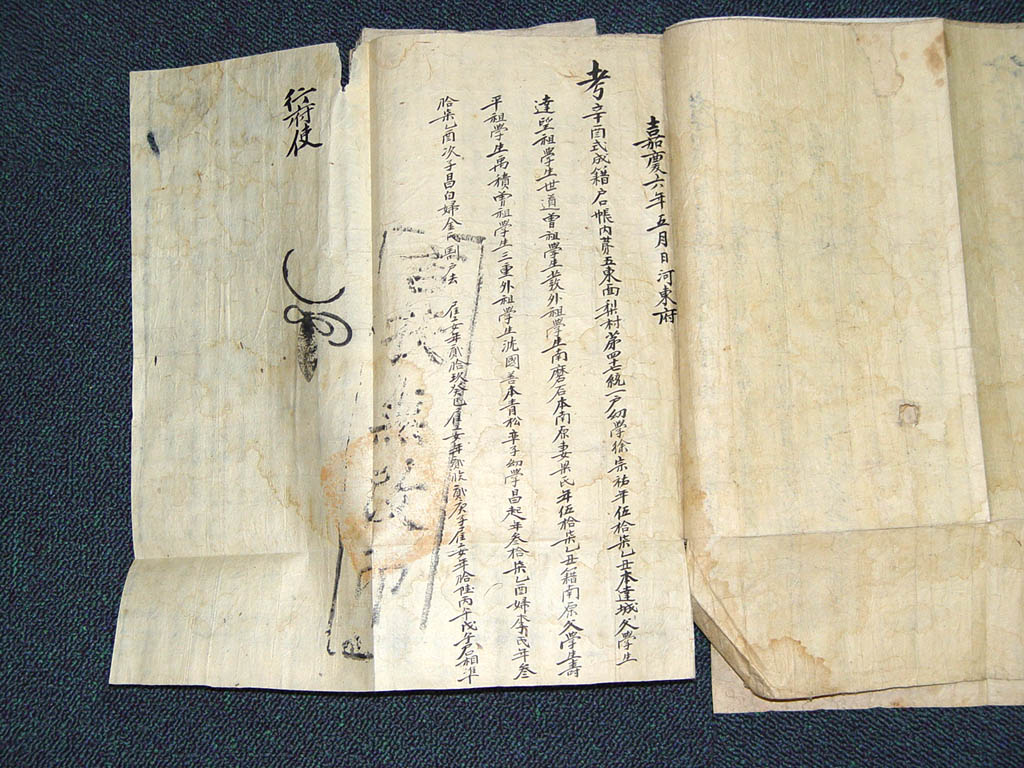 嘉慶六年五月日河東府
考辛酉式成籍戶帳內第五東面梨村第四統一戶幼學徐宗祐年伍拾柒乙丑本達城父學生
達 祖學生世道曾祖學生 外祖學生南磨石本南原妻梁氏年伍拾柒乙丑籍南原父學生壽
平祖學生禹積曾祖學生三重外祖學生沈國善本青松率子幼學昌起年叁拾柒乙酉婦李氏年叁
拾柒乙酉次子昌白婦金氏割戶去 雇女年貳拾玖癸巳雇女年 貳庚 雇女年拾 丙午戊午 相準
行府使